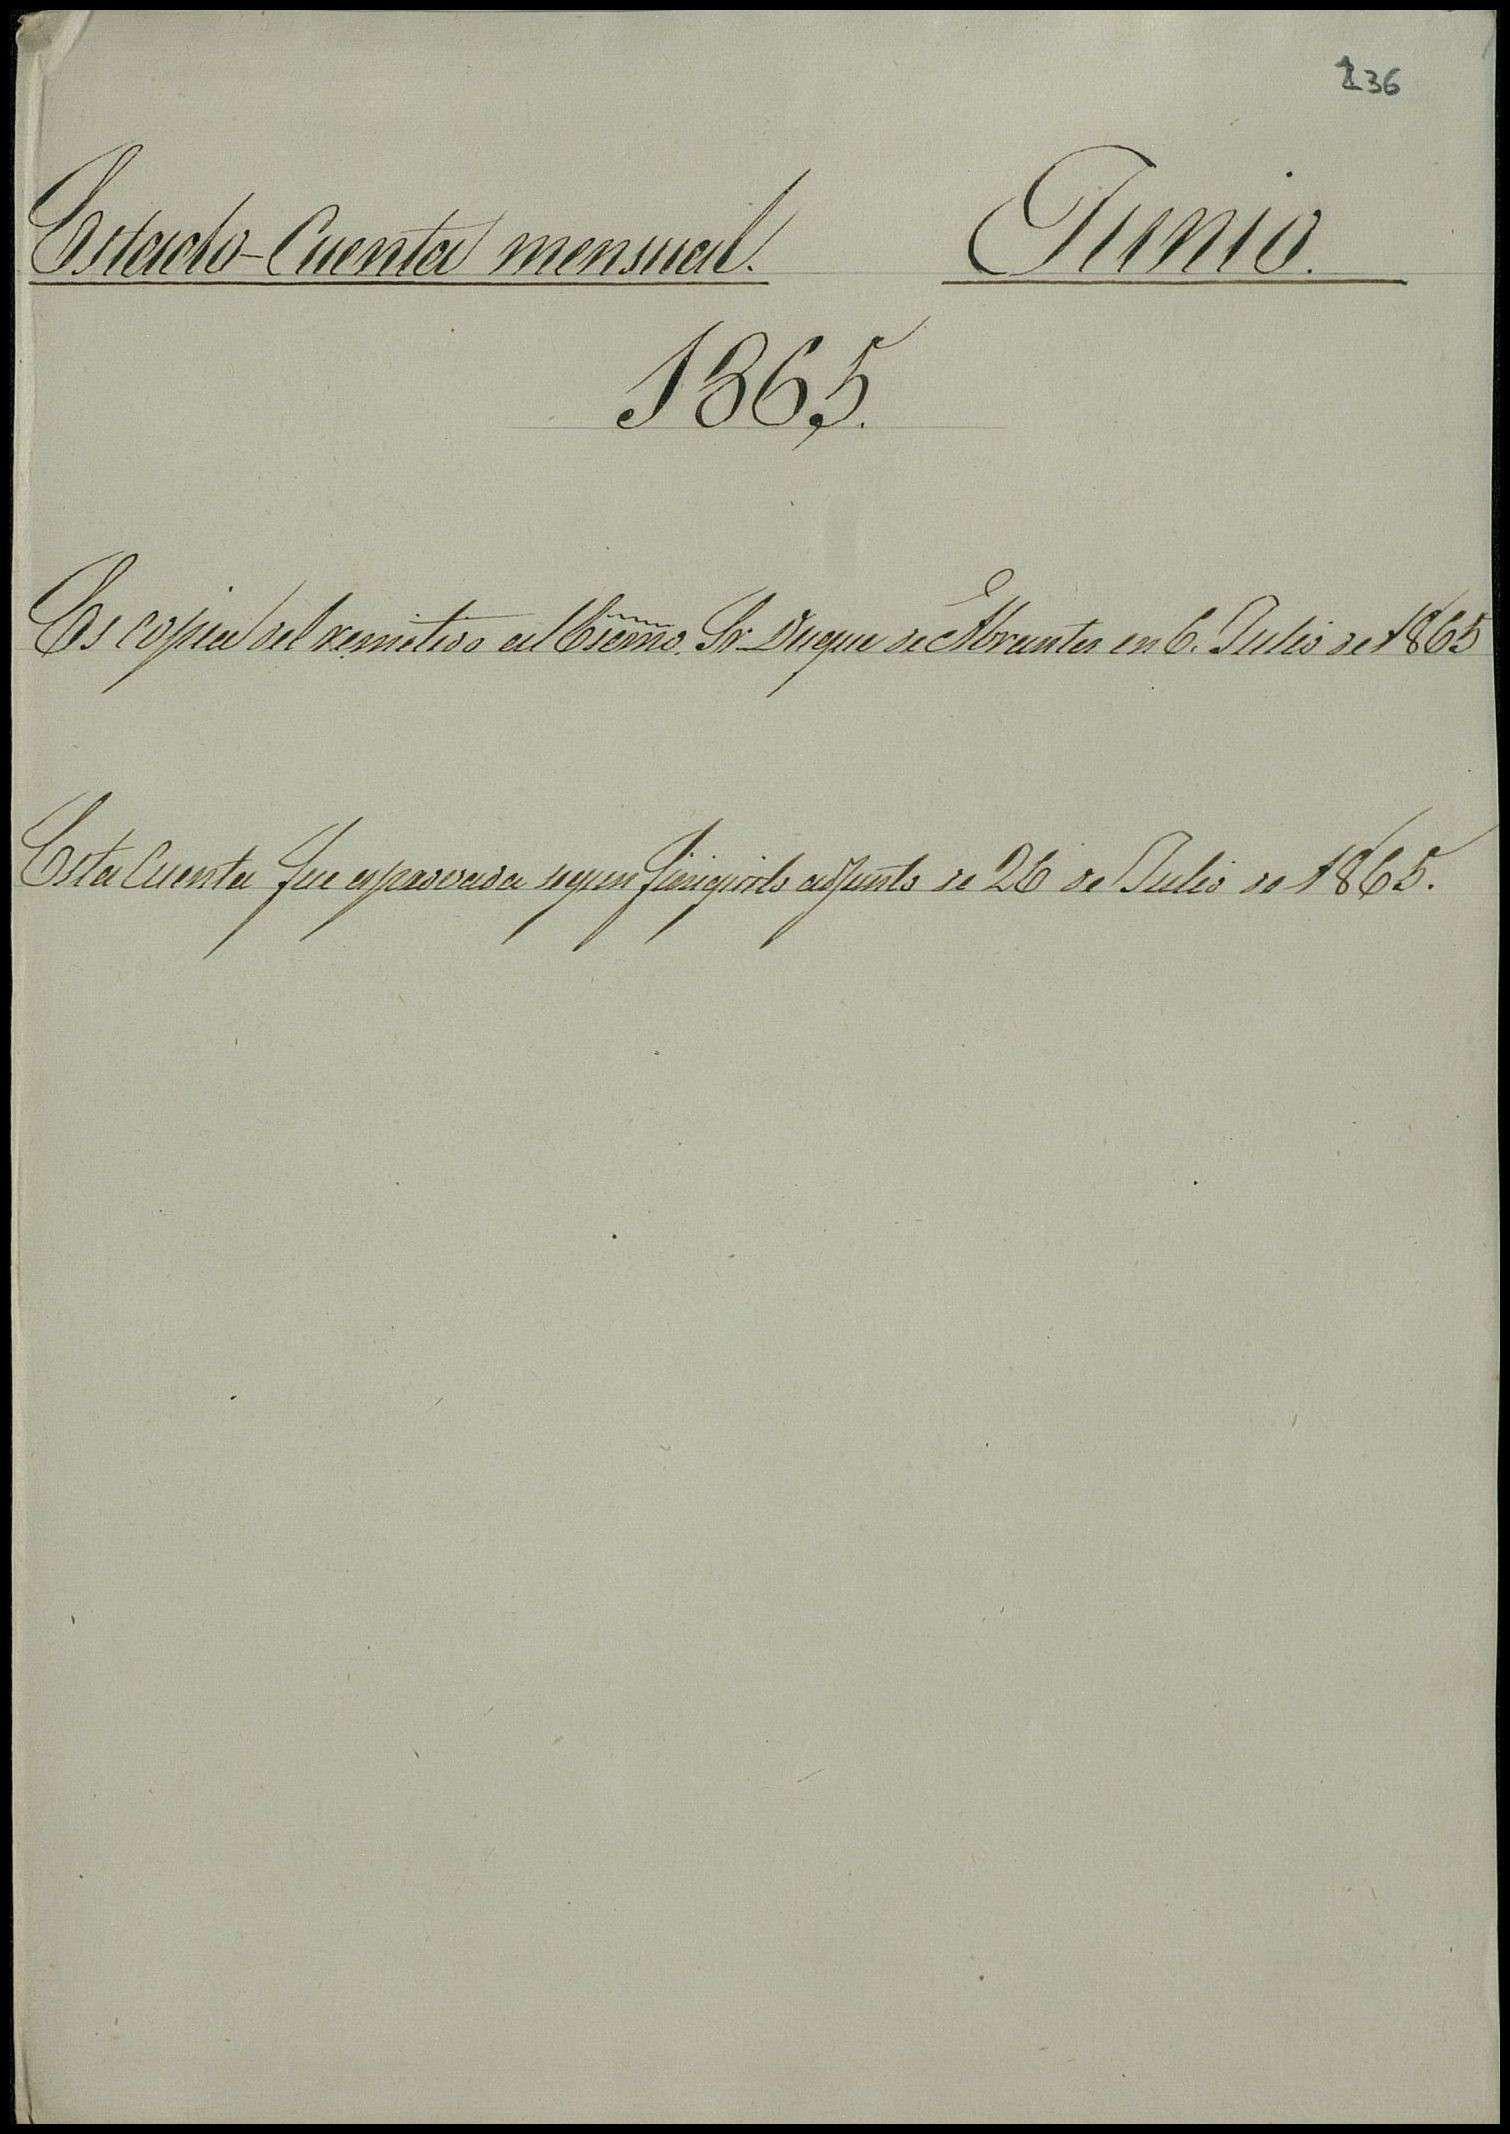 236
Estado-Cuenta mensual. Junio.
1865.
Es copia del remitido al Escmo. Sr. Duque de Abrantes en 6. Julio de 1865
Esta Cuenta fue aprovada segun finiquito adjunto de 26 de Julio de 1865.